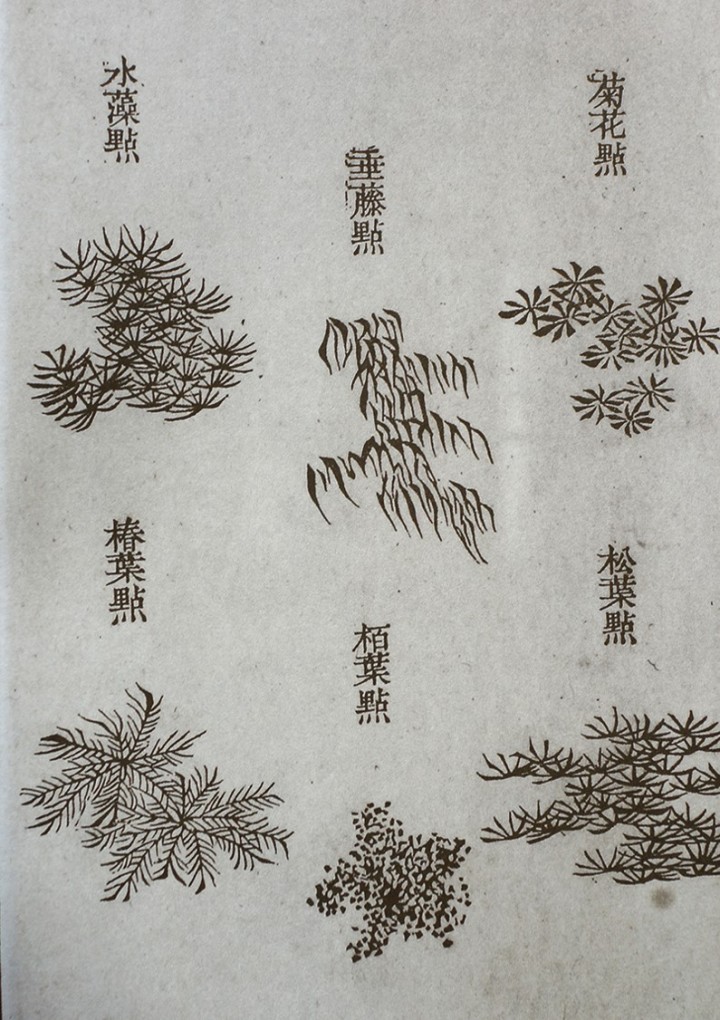 菊花點
松葉點
垂藤點
栢葉點
水藻點
椿葉點